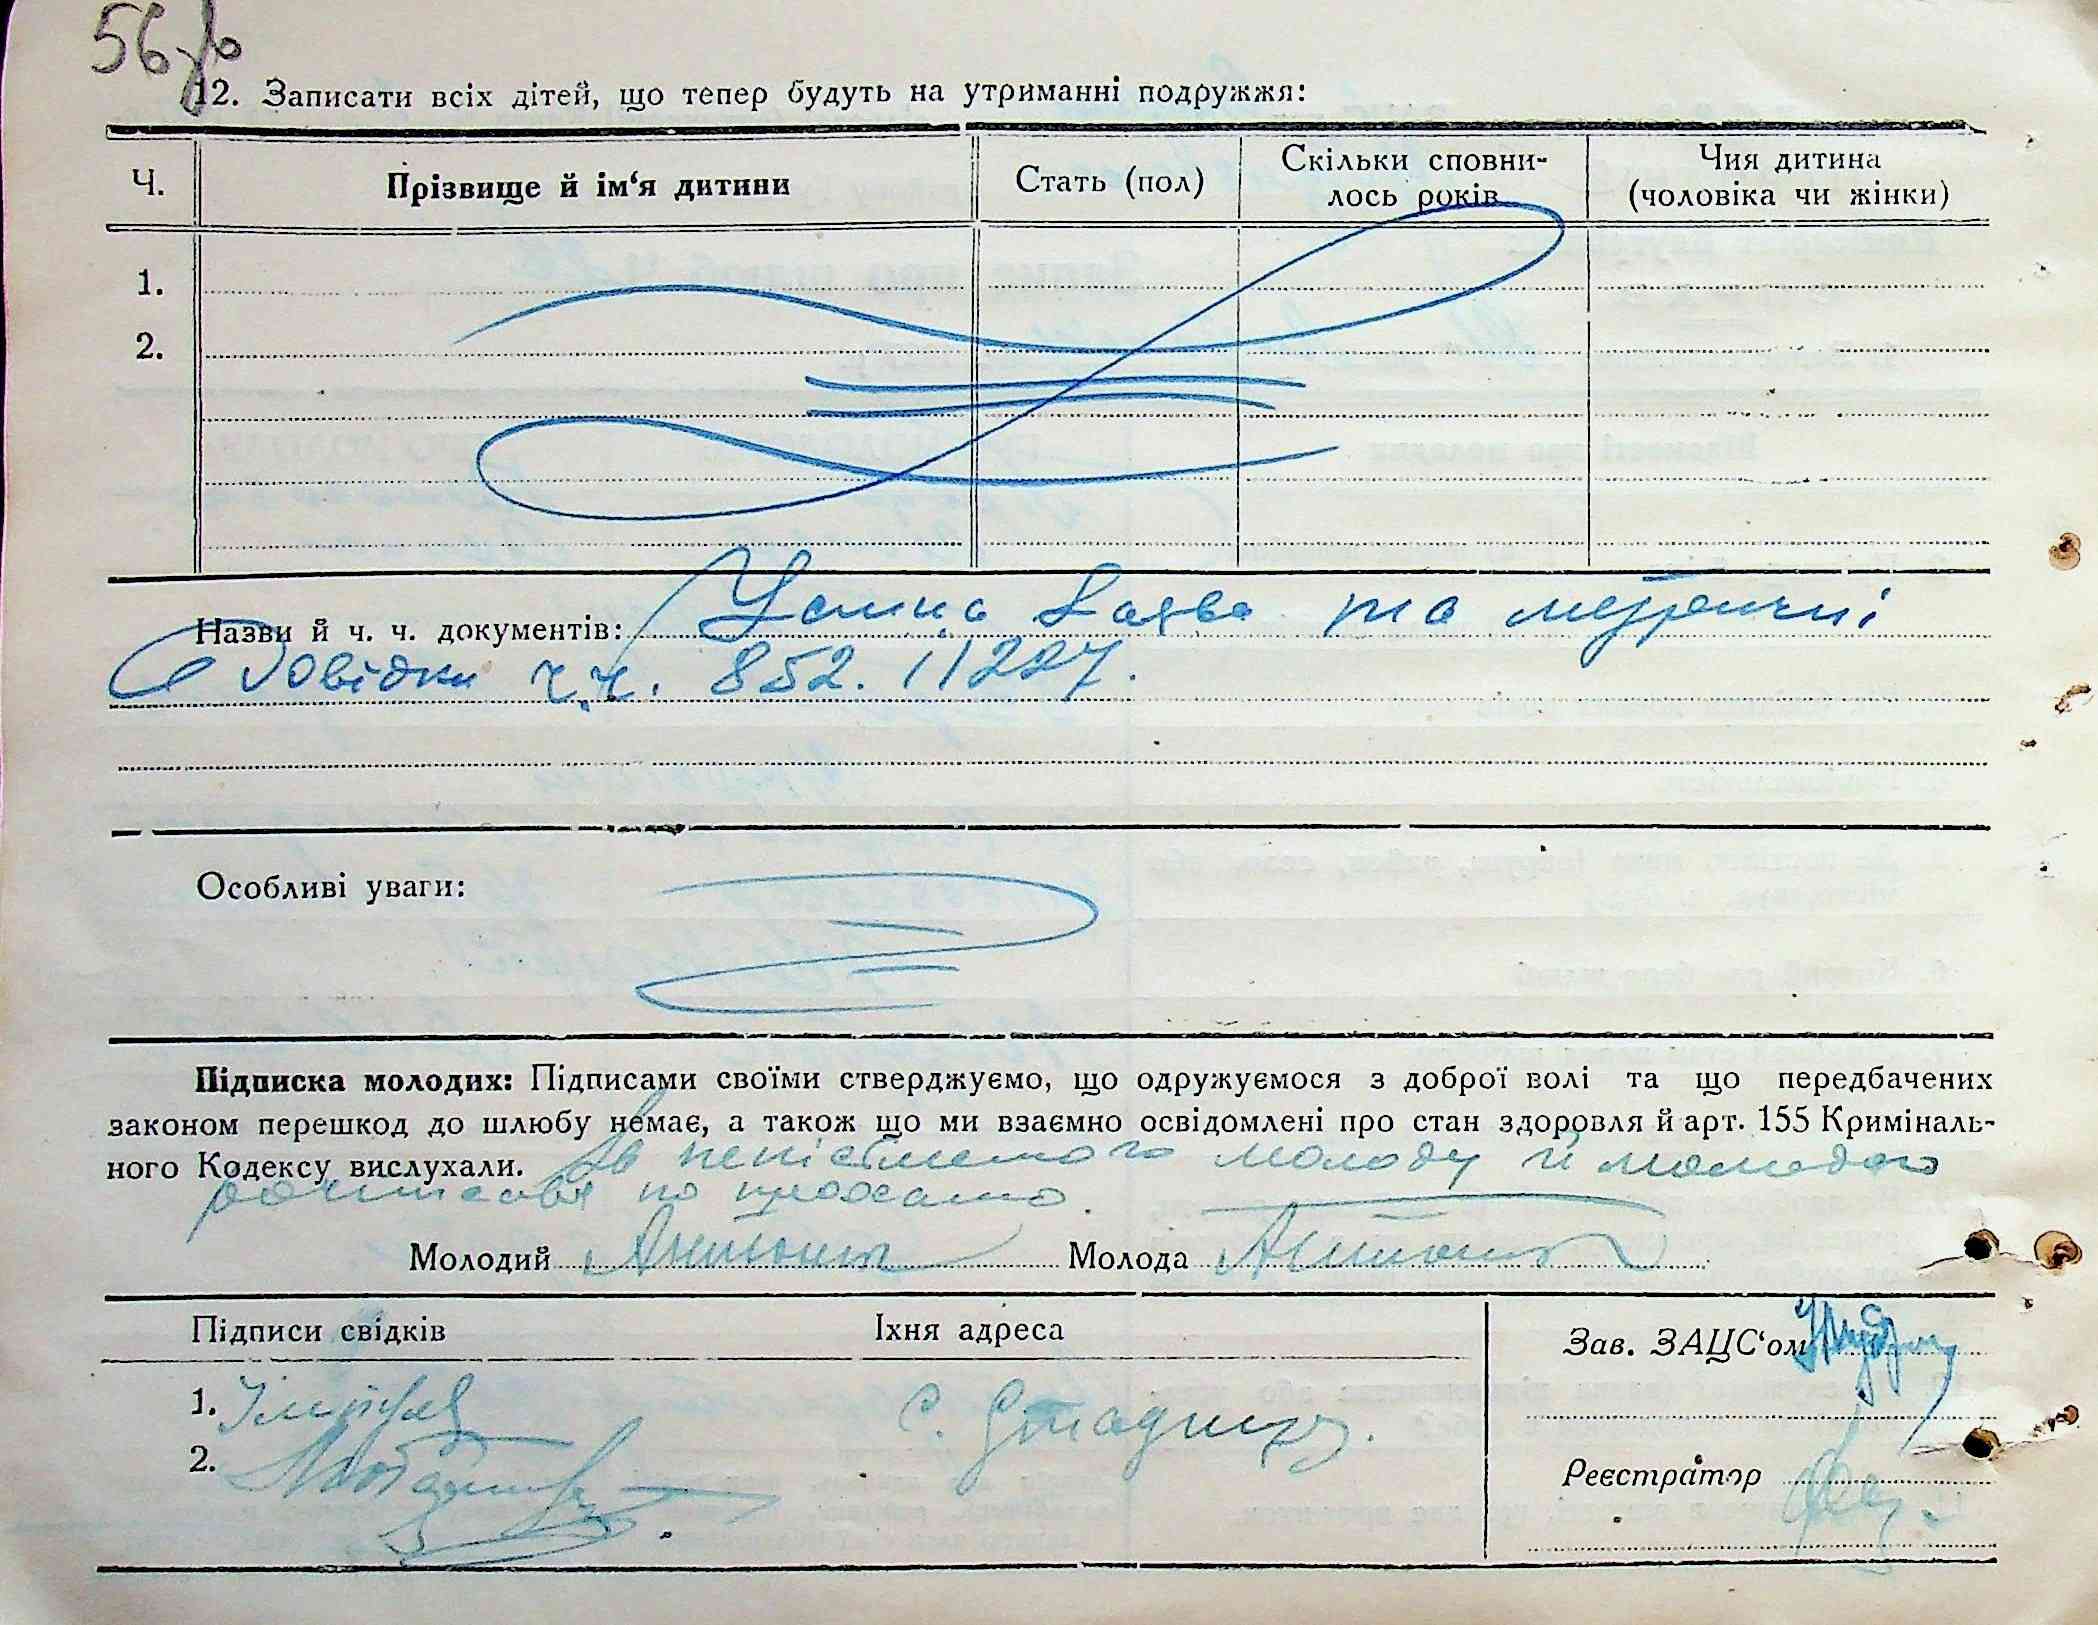 56зв
12. Записати всіх дітей, що тепер будуть на утриманні подружжя:
Ч.
Прізвище й ім‘я дитини
Стать (пол)
Скільки сповни-
лось років
Чия дитина
(чоловіка чи жінки)
1.
2.
Назви й ч. ч. документів: Усина заява та метричні
довідки ч.ч. 852. 11227.
Особливі уваги:
Підписка молодих: Підписами своїми стверджуємо, що одружуємося з доброї волі та що передбачених
законом перешкод до шлюбу немає, а також що ми взаємно освідомлені про стан здоровля й арт. 155 Криміналь-
ного Кодексу вислухали. За неписьменого молоду й молодого
росписався по проханю.
Молодий Молода
Підписи свідків
Їхня адреса
Зав. ЗАЦС‘ом
1.
с. Стадниця.
2.
Реєстратор